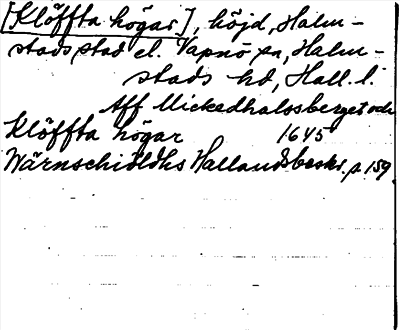 [Klöffta högar], höjd, Halm-
stads stad el. Vapnö sn, Halm-
stads hd, Hall. l.
Aff Mickedhalssberget och
Klöffta högar 1645
Wärnschiöldhs Hallandsbeskr. p. 159.